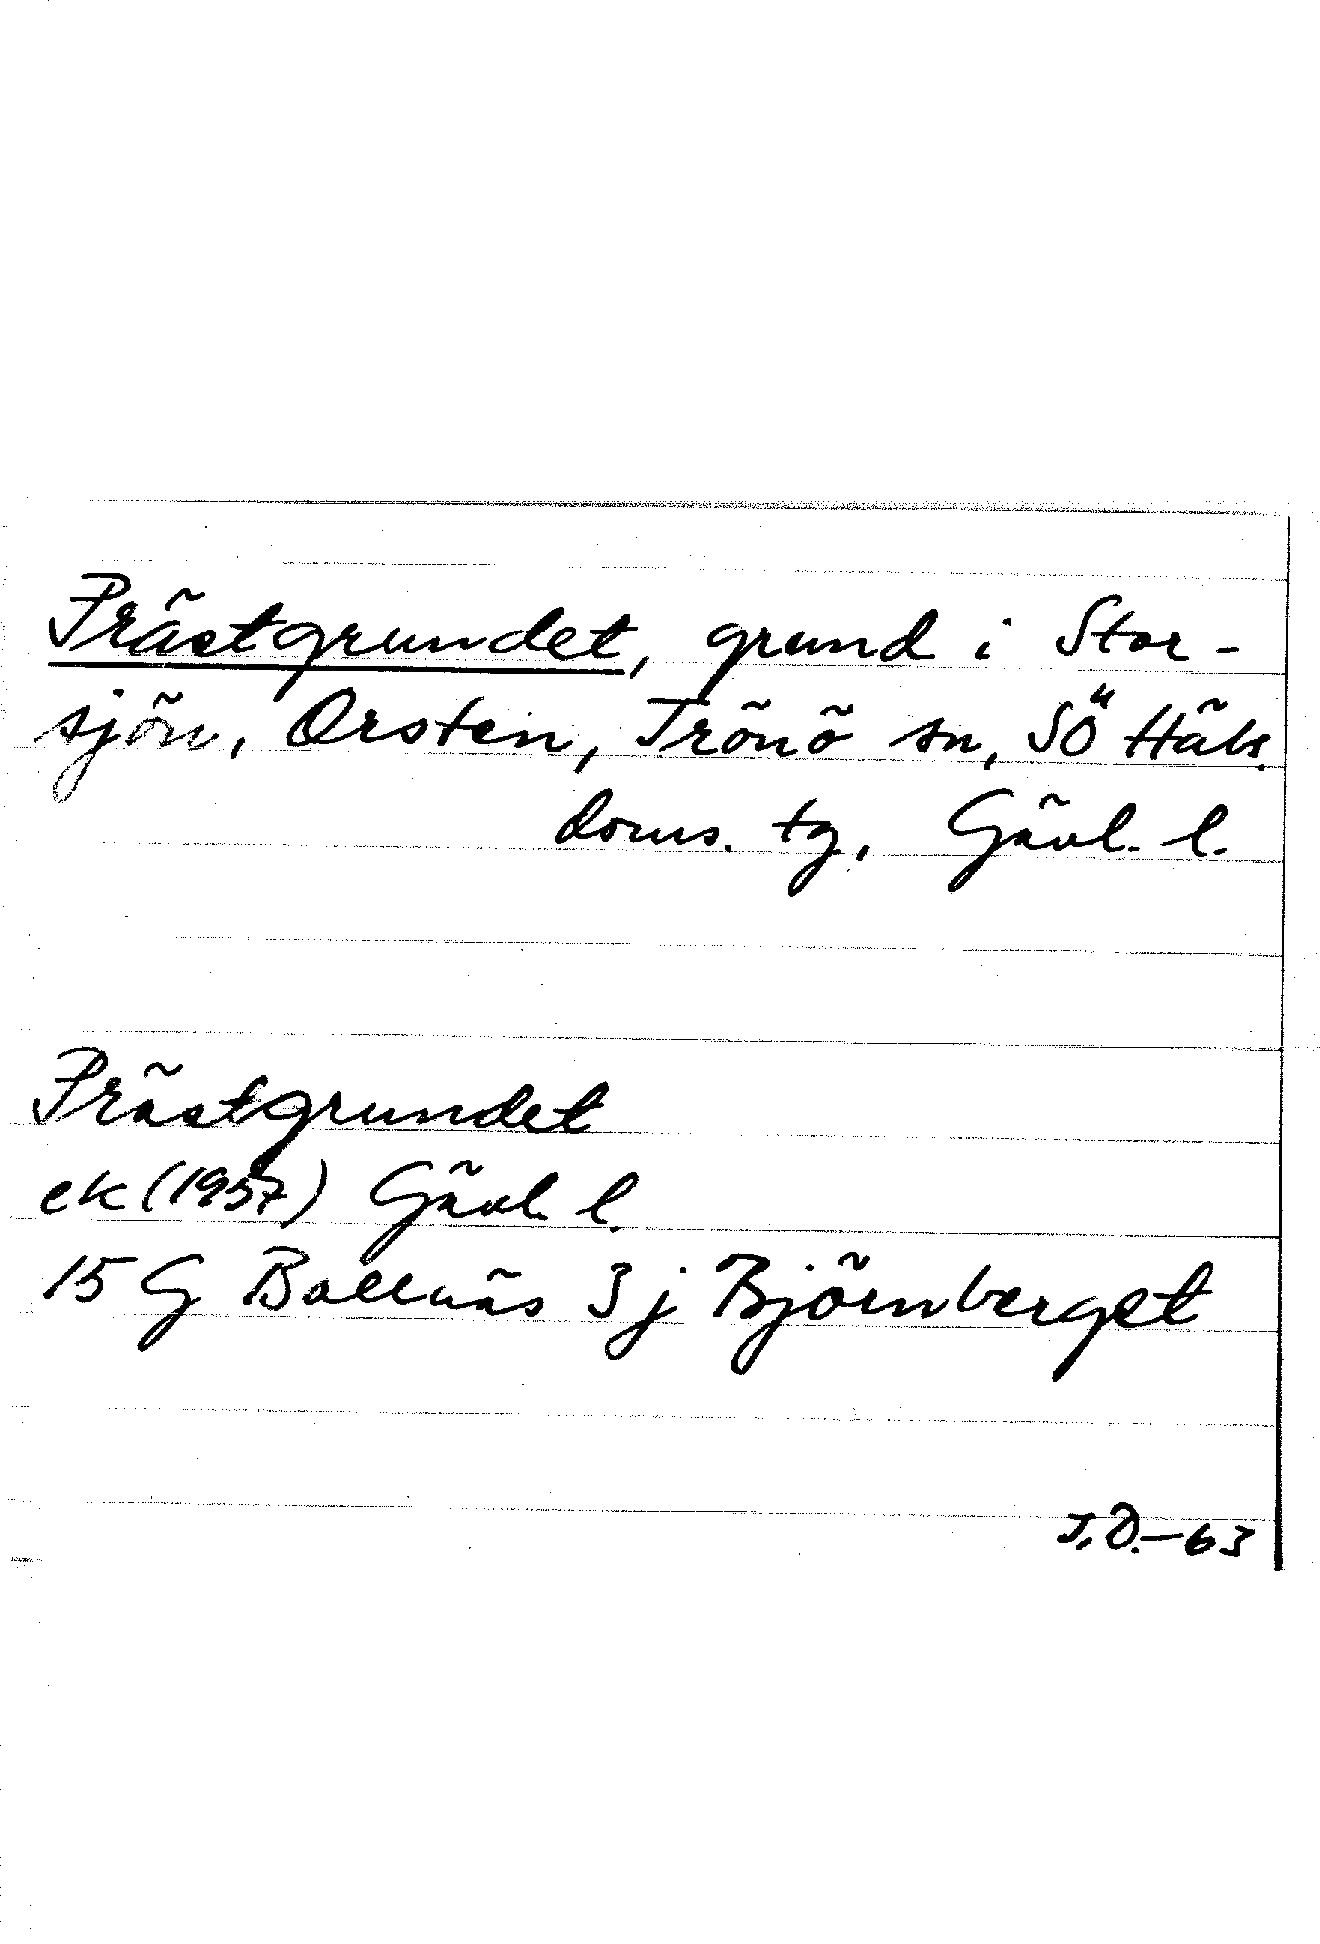 Prästgrundet, grund i Stor-
sjön, Orsten, Trönö sn, SÖ Häls.
doms. tg, Gävl. l.
Prästgrundet
ek (1957) Gävl. l.
15 G Bollnäs 3 j Björnberget
J.D.-63